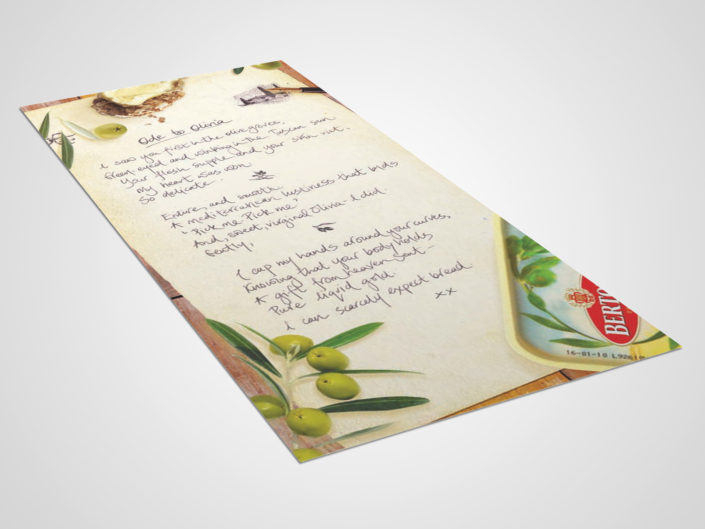 Ode to Olivia
I saw you first in the olive groves,
Green eyed and winking in the Tuscan sun
Your flesh supple and your skin riri.
my heart was won
So delicate.
Endure, and smooth
A mediterranean lustiness that bids
"Pick me Pick me"
And, sweet, virginal Olivia - I did.
Gently,
I cup my hands around your curves,
Knowing that your body holds
A gift from heaven sent -
Pure liquid gold.
I can scarcely expect bread.
xx
BERTO
16-01-10 L926